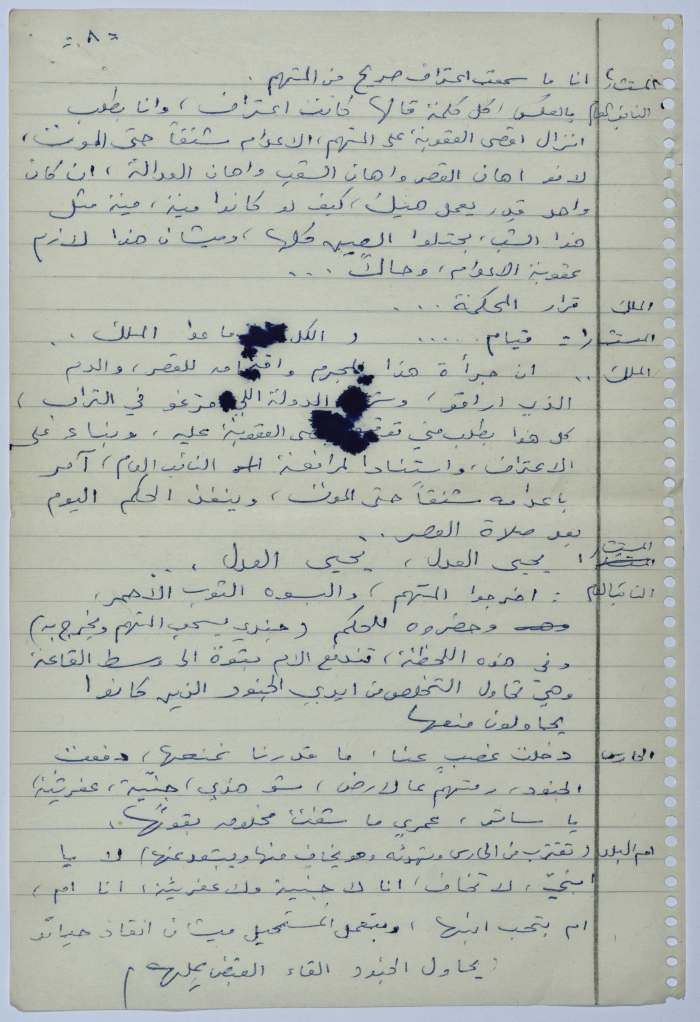 = ٨ =
المستشار انا ما سمعت اعتراف صريح من المتهم .
النائب العام بالعكس ، كل كلمة قالها كانت اعتراف ، وانا بطلب
انزال اقصى العقوبة على المتهم ، الاعدام شنقاً حتى الموت ،
لانو اهان القصر واهان الشعب واهان العدالة ، ان كان
واحد قدر يعمل هيك ، كيف لو كانوا مية ، مية مثل
هذا الشب ، بحتلوا كلها ، وميشان هذا لازم
عقوبة الاعدام ، وحالاً ...
الملك قرار المحكمة ...
المستشار : قيام ..... و الكل ما عدا الملك ..
الملك .. ان جرأة هذا المجرم للقصر ، والدم
الذي اراقو ، الدولة اللي في التراب ،
كل هذا بطلب مني العقوبة عليه ، وبناء على
الاعتراف ، واستنادا لمرافعة النائب العام ، آمر
باعدامه شنقاً حتى الموت ، وينفذ الحكم اليوم
بعد صلاة العصر ..
المستشار : يحيى العدل ، يحيى العدل ، ..
النائب العام : اخرجوا المتهم ، والبسوه الثوب الاحمر ،
وحضروه للحكم ( جندي يسحب المتهم ويخرج به )
وفي هذه اللحظة ، تندفع الام بقوة الى وسط القاعة
وهي تحاول التخلص من ايدي الجنود الذين كانوا
يحاولون منعها
الحارس دخلت غصب عنا ، ما قدرنا نمنعها ، دفعت
الجنود ، رمتهم عالارض ، شو هذي ، جنيّة ، عفريتة
يا ساتر ، عمري ما شفت مخلوقه بقوتها .
ام البلد ( تقترب من الحارس وتهدئه وهو يخاف منها ويبتعد عنها ) لا يا
ابنيّ ، لا تخاف ، انا لا جنية ولا عفريتة ، انا ام ،
ام بتحب ابنها ، وبتعمل المستحيل ميشان انقاذ حياتو
( يحاول الجنود القاء القبض عليها )